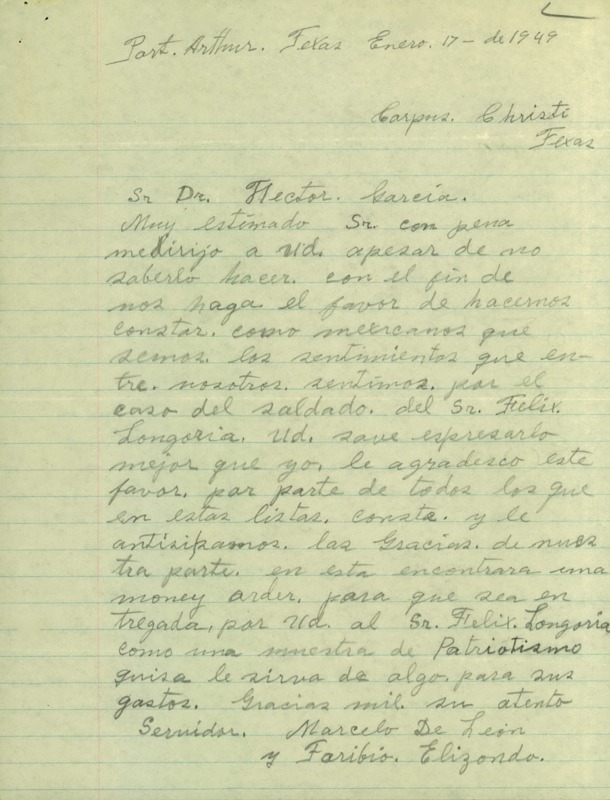 Port. Arthur. Texas Enero. 17 - de 1949
Corpus. Christi
Texas
Sr Dr. Hector. Garcia.
Muy estimado Sr. con pena
medirijo a Ud. apesar de no
saberlo hacer. con el fin de
nos haga el favor de hacernos
constar. como mexicanos que
semos. los sentimientos que en-
tre. nosotros. sentimos. por el
caso del saldado. del Sr. Felix.
Longoria. Ud. save espresarlo
mejor que yo, le agradesco este
favor. por parte de todos los que
en estas listas. conste. y le
antisipamos. las Gracias. de nues
tra parte. en esta encontrara una
money order. para que sea en
tregada, por Ud. al Sr. Felix. Longoria
como una muestra de Patriotismo
quisa le sirva de algo. para sus
gastos. Gracias mil. su atento
Servidor. Marcelo De León
y Faribio. Elizondo.